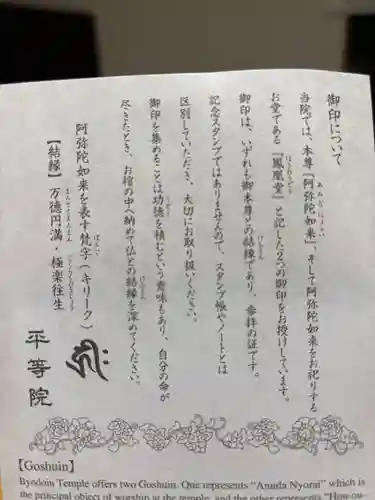 御印について
当院では、本尊『阿弥陀如来』、そして阿弥陀如来をお祀りする
お堂である『鳳凰堂』と記した2つの御印をお授けしています。
御印は、いずれも御本尊との結縁であり、参拝の証です。
記念スタンプではありませんので、スタンプ帳やノートとは
区別していただき、大切にお取り扱いください。
御印を集めることは功徳を積むという意味もあり、自分の命が
尽きたとき、お棺の中へ納めて仏との結縁を深めてください。
阿弥陀如来を表す梵字(キリーク)
【結縁】万徳円満・極楽往生
平等院
【Goshuin】
Byodoin Temple offers two Goshuin. One represents "Amida Nyorai" which is
the principal object of worship at the temple, and the other represents "How-ou-